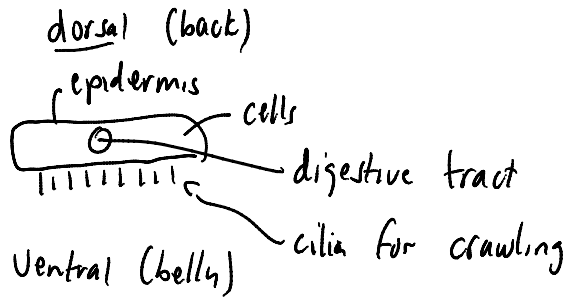 dorsal (back)
epidermis
cells
digestive tract
cilia for crawling
Ventral (belly)